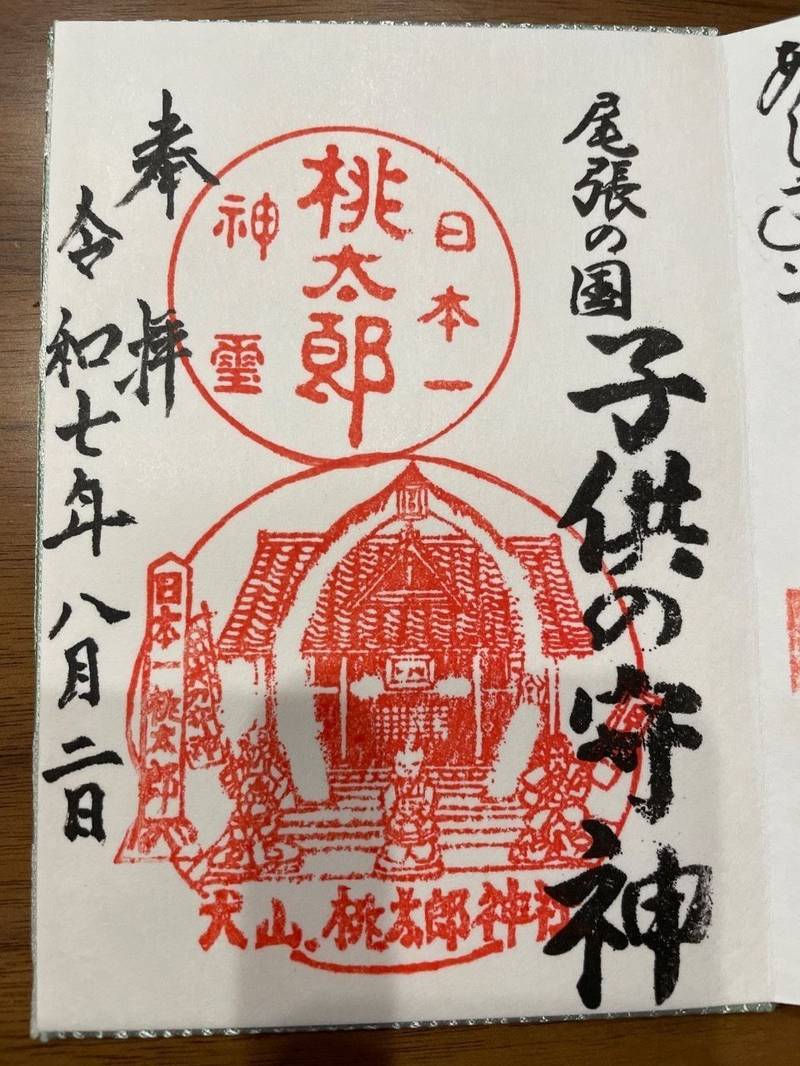 尾張の国 子供の守神
日本一
桃太郎
神霊
奉拝
令和七年 八月二日
日本一桃太郎
犬山、桃太郎神社